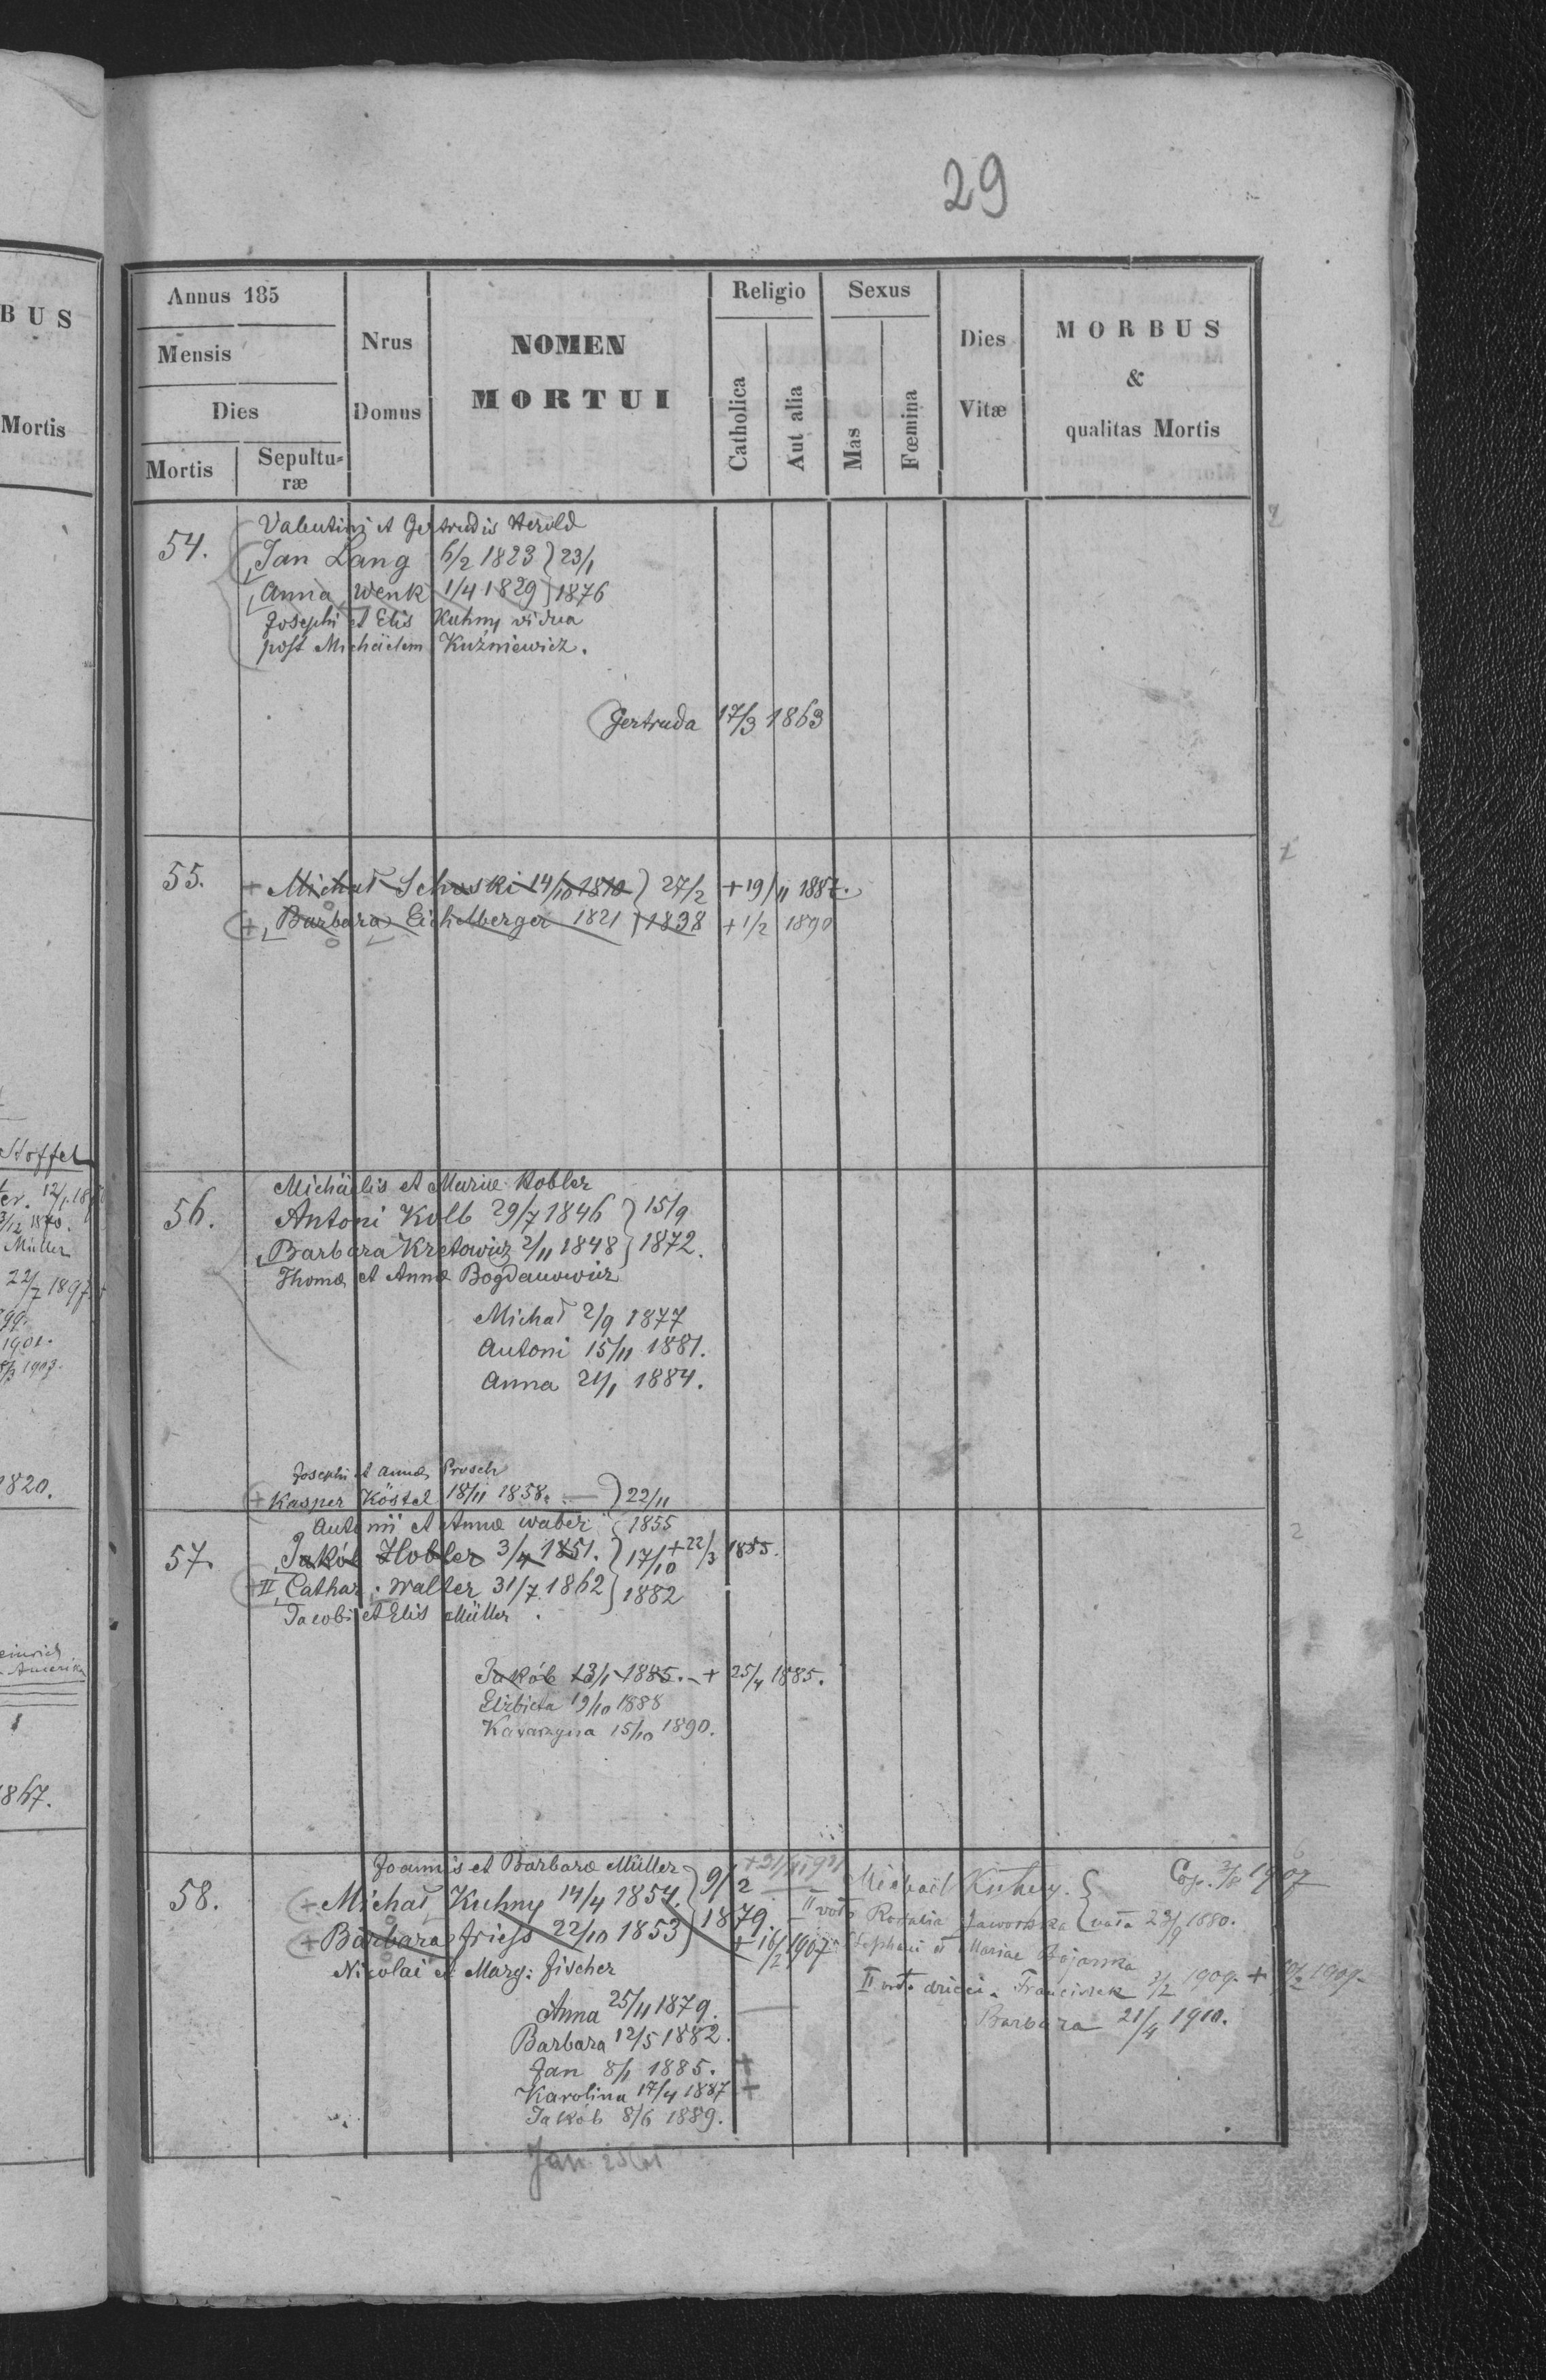 BUS
Mortis
Stoffel
1870.
Müller
22/7 1897
1901.
1903.
1820.
Amerika
1867.
29
Annus 185
Mensis
Dies
Mortis
Sepultu-
ræ
Nrus
Domus
NOMEN
MORTUI
Religio
Catholica
Aut alia
Sexus
Mas
Fœmina
Dies
Vitæ
MORBUS
&
qualitas Mortis
Valentini et Gertrudis Herold
54. Jan Lang 6/2 1823 } 23/1
Anna Wenk 1/4 1829 } 1876
Josephi et Elis Kuhny vidua
post Michäelem Kuźniewicz.
Gertruda 17/3 1863
55. + Michał Schuski 14/10 1810 } 27/2 + 19/11 1887.
+ Barbara Eichelberger 1821 } 1838 + 1/2 1890
Michäelis et Mariæ Kobler
56. Antoni Kolb 29/7 1846 } 15/9
Barbara Kretowicz 2/11 1848 } 1872.
Thomæ et Annæ Bogdanowicz
Michał 2/9 1877
Antoni 15/11 1881.
Anna 21/1 1884.
Josephi et Annæ Prosch
+ Kasper Köstel 18/11 1838. — } 22/11
Antonii et Annæ Waber { 1855
57. Jakób Hobler 3/4 1851. } 17/10 + 22/3 1885.
+ II Cathar: Walter 31/7 1862 } 1882
Jacobi et Elis Müller.
Jakób 13/1 1885. - + 25/4 1885.
Elżbieta 19/10 1888
Katarzyna 15/10 1890.
Joannis et Barbaræ Müller
58. + Michał Kuhny 14/4 1854. } 9/2
+ Barbara Friess 22/10 1853 } 1879. + 16/2 1907
Nicolai et Marg: Fischer
Anna 25/11 1879.
Barbara 12/5 1882.
Jan 8/1 1885. +
Karolina 17/4 1887 +
Jakób 8/6 1889.
Jan
Michaël Kuhny. { Cop. 3/8 1907
II voto Rosalia Jaworska { nata 23/9 1880.
Stephani et Mariae
II voto dzieci. Franciszek 3/2 1909. + 10/2 1909.
Barbara 21/4 1910.